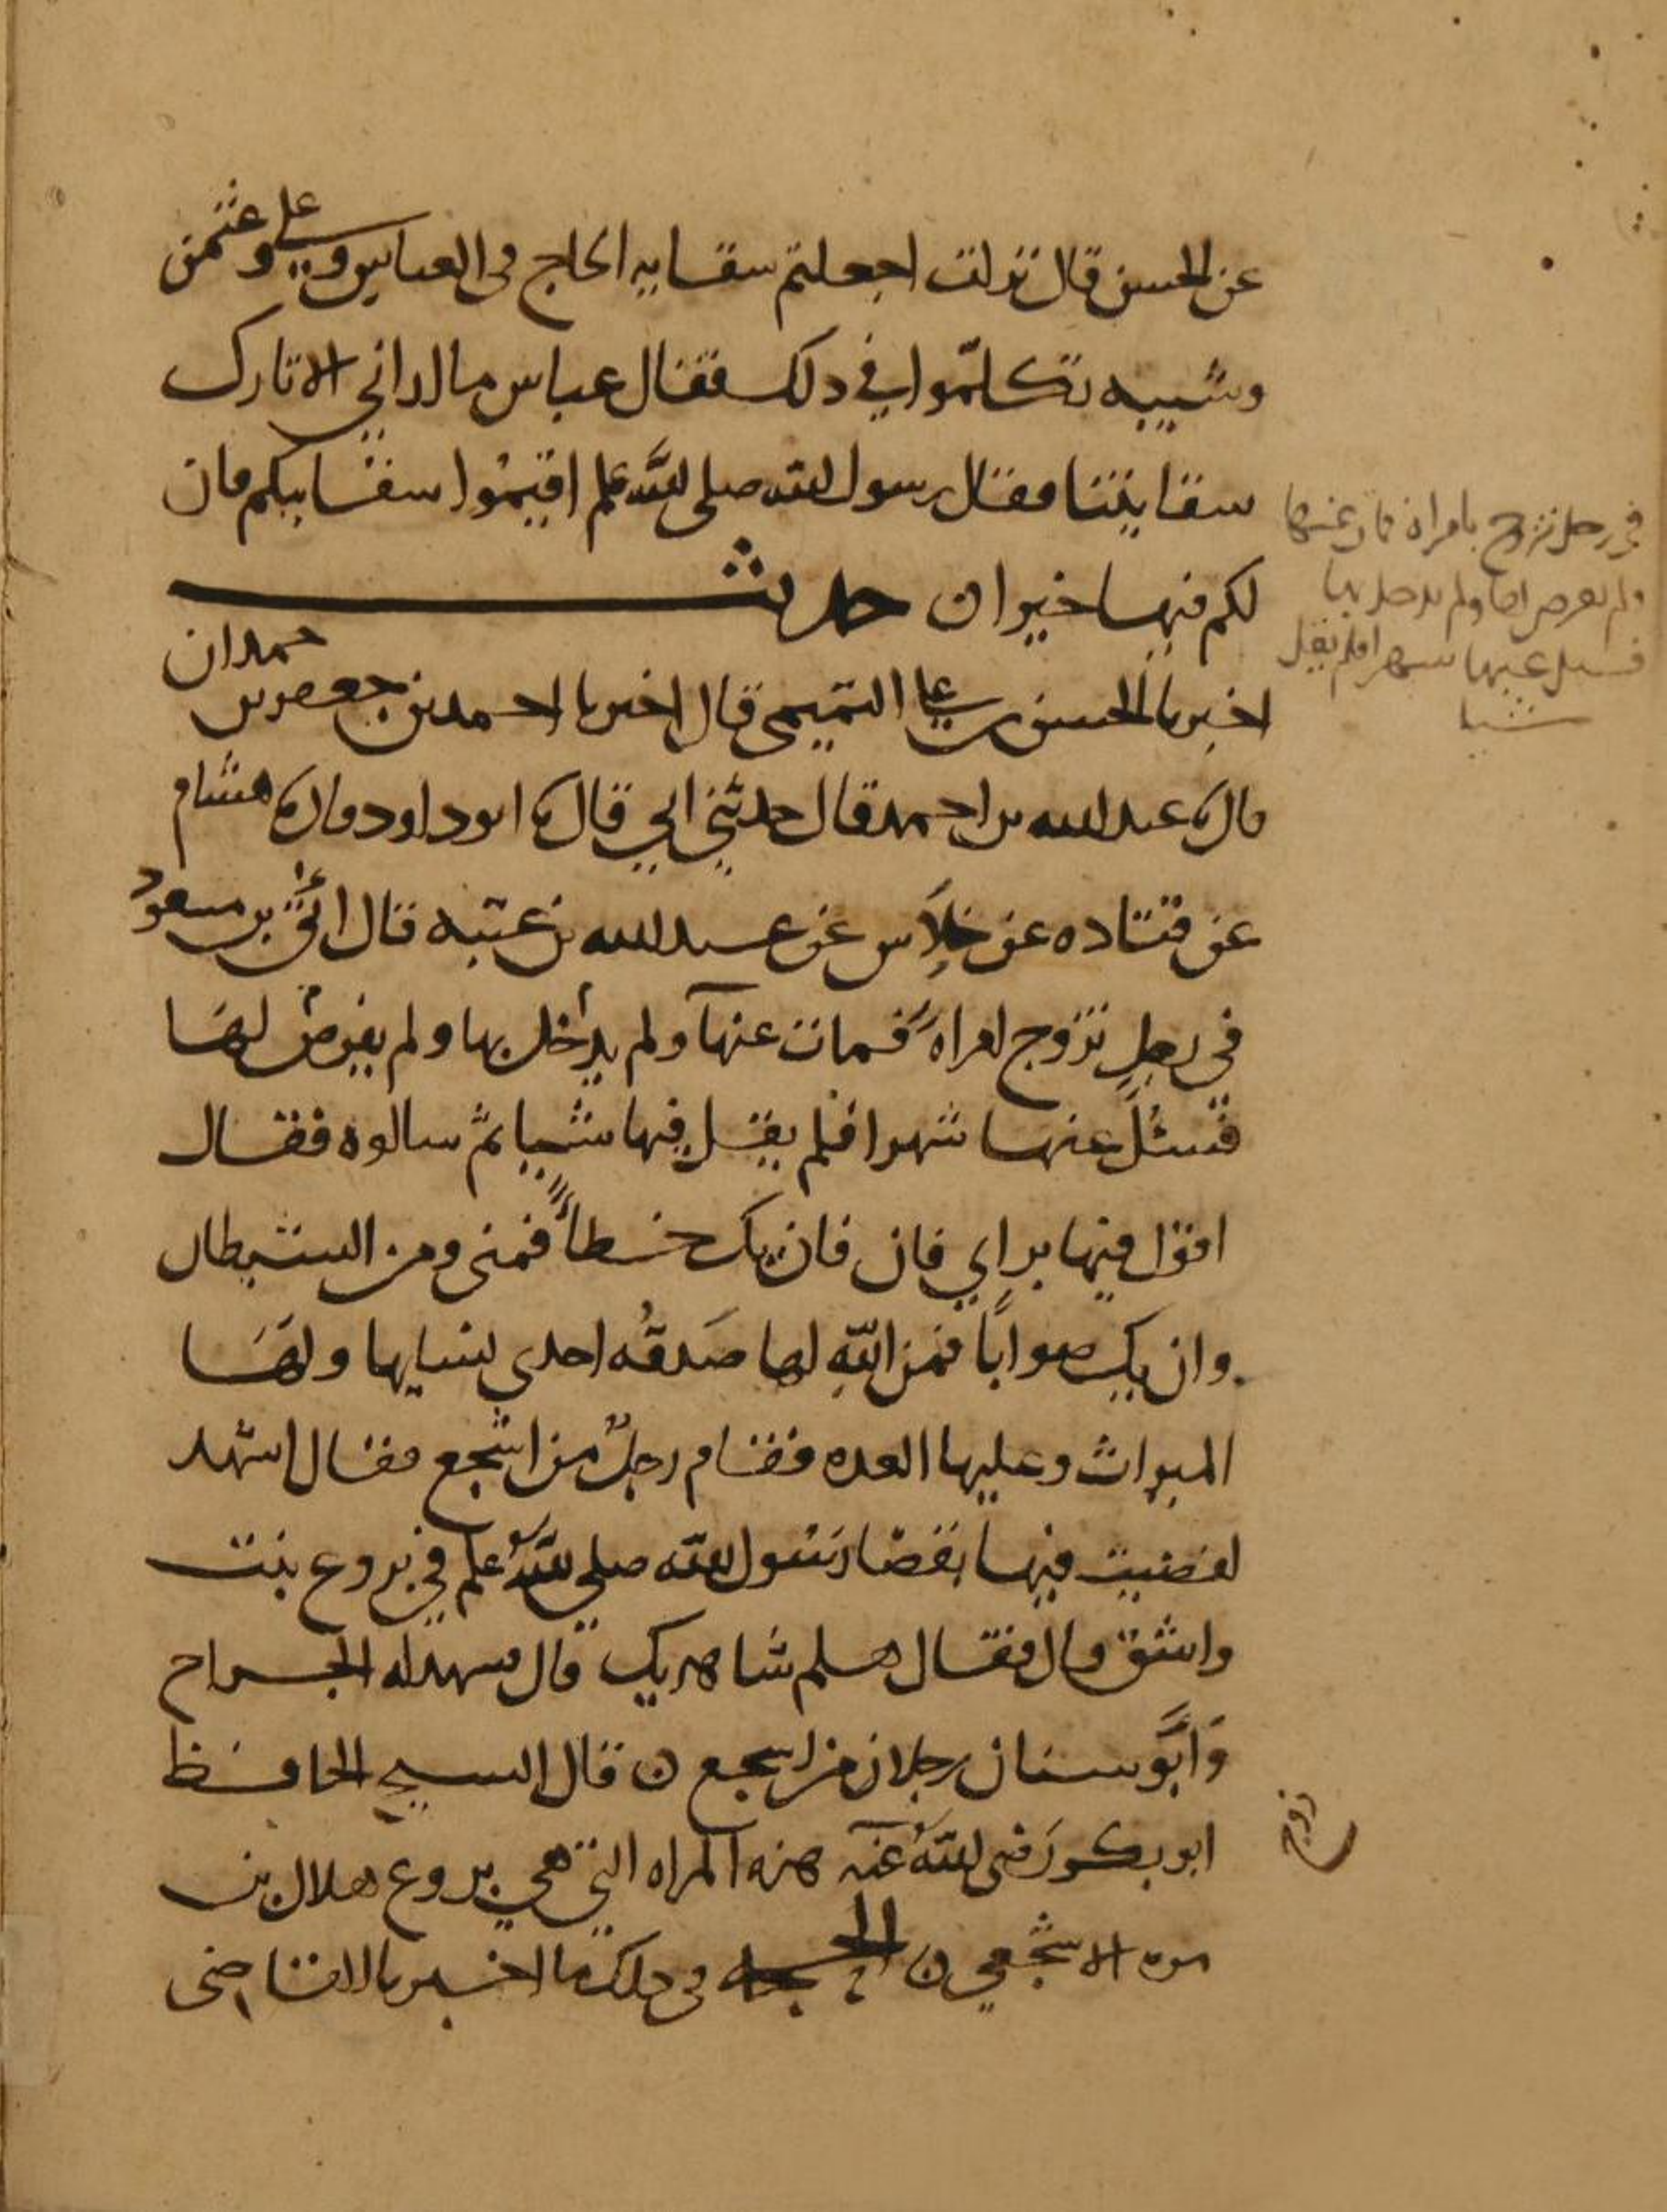 عن الحسن قال نزلت اجعلتم سقايه الحاج فى العباس وعلي وعثمن
وشيبه تكلموا في ذلك فقال عباس ما اراني الا تارك
سقايتنا فقال رسول الله صلى الله علم اقيموا سقايتكم فان
لكم فيها خيرا ن حديث
اخبرنا الحسن بن علي التميمى قال اخبرنا احمد بن جعفر بن حمدان
قال ثنا عبد الله بن احمد قال حدثني ابي قال ثنا ابو داود قال ثنا هشام
عن قتاده عن خلاس عن عبد الله بن عتبه قال اتى بن مسعود
في رجل تزوج امراه فمات عنها ولم يدخل بها ولم يفرض لها
فسئل عنها شهرا فلم يقل فيها شيا ثم سالوه فقال
اقول فيها براي فان فان يك خطأ فمنى ومن الشيطان
وان يك صوابا فمن الله لها صدقه احدي نسايها ولها
الميراث وعليها العده فقام رجل من اشجع فقال اشهد
لقضيت فيها بقضا رسول الله صلي الله علم في بروع بنت
واشق قال فقال هلم شاهديك قال فشهد له الجراح
وابو سنان رجلان من اشجع ن قال الشيخ الحافظ
ابو بكر رضى الله عنه هذه المراه التي هي بروع هلال بن
مره الاشجعي ن الحجه فى ذلك ما اخبرنا القاضى
في رجل تزوج بامراة فمات عنها
ولم يفرض لها ولم يدخل بها
فسيل عنها شهرا فلم يقل
شيا